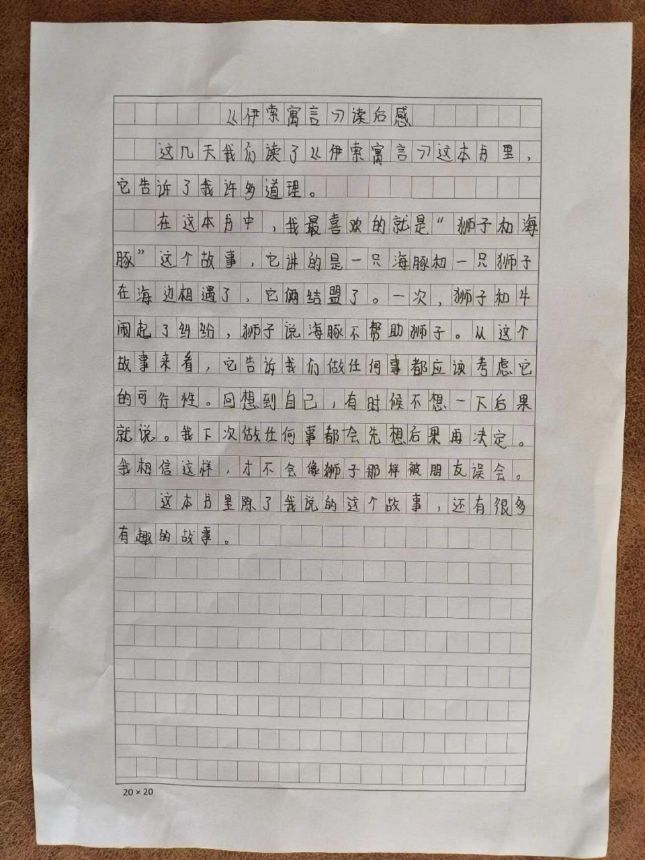 《伊索寓言》读后感
这几天我们读了《伊索寓言》这本书里，
它告诉了我许多道理。
在这本书中，我最喜欢的就是“狮子和海
豚”这个故事，它讲的是一只海豚和一只狮子
在海边相遇了，它俩结盟了。一次，狮子和牛
闹起了纠纷，狮子说海豚不帮助狮子。从这个
故事来看，它告诉我们做任何事都应该考虑它
的可行性。回想到自己，有时候不想一下后果
就说。我下次做任何事都会先想后果再决定。
我相信这样，才不会像狮子那样被朋友误会。
这本书里除了我说的这个故事，还有很多
有趣的故事。
20×20